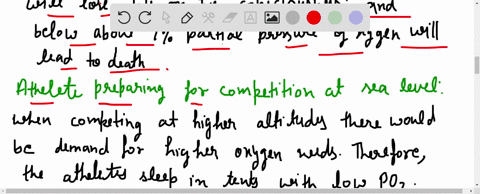 will lose
and
below above 7% partial pressure of oxygen will
lead to death.
Athelete preparing for competition at sea level:
when competing at higher altitudes there would
be demand for higher oxygen needs. Therefore,
the atheletes sleep in tents with low PO2.